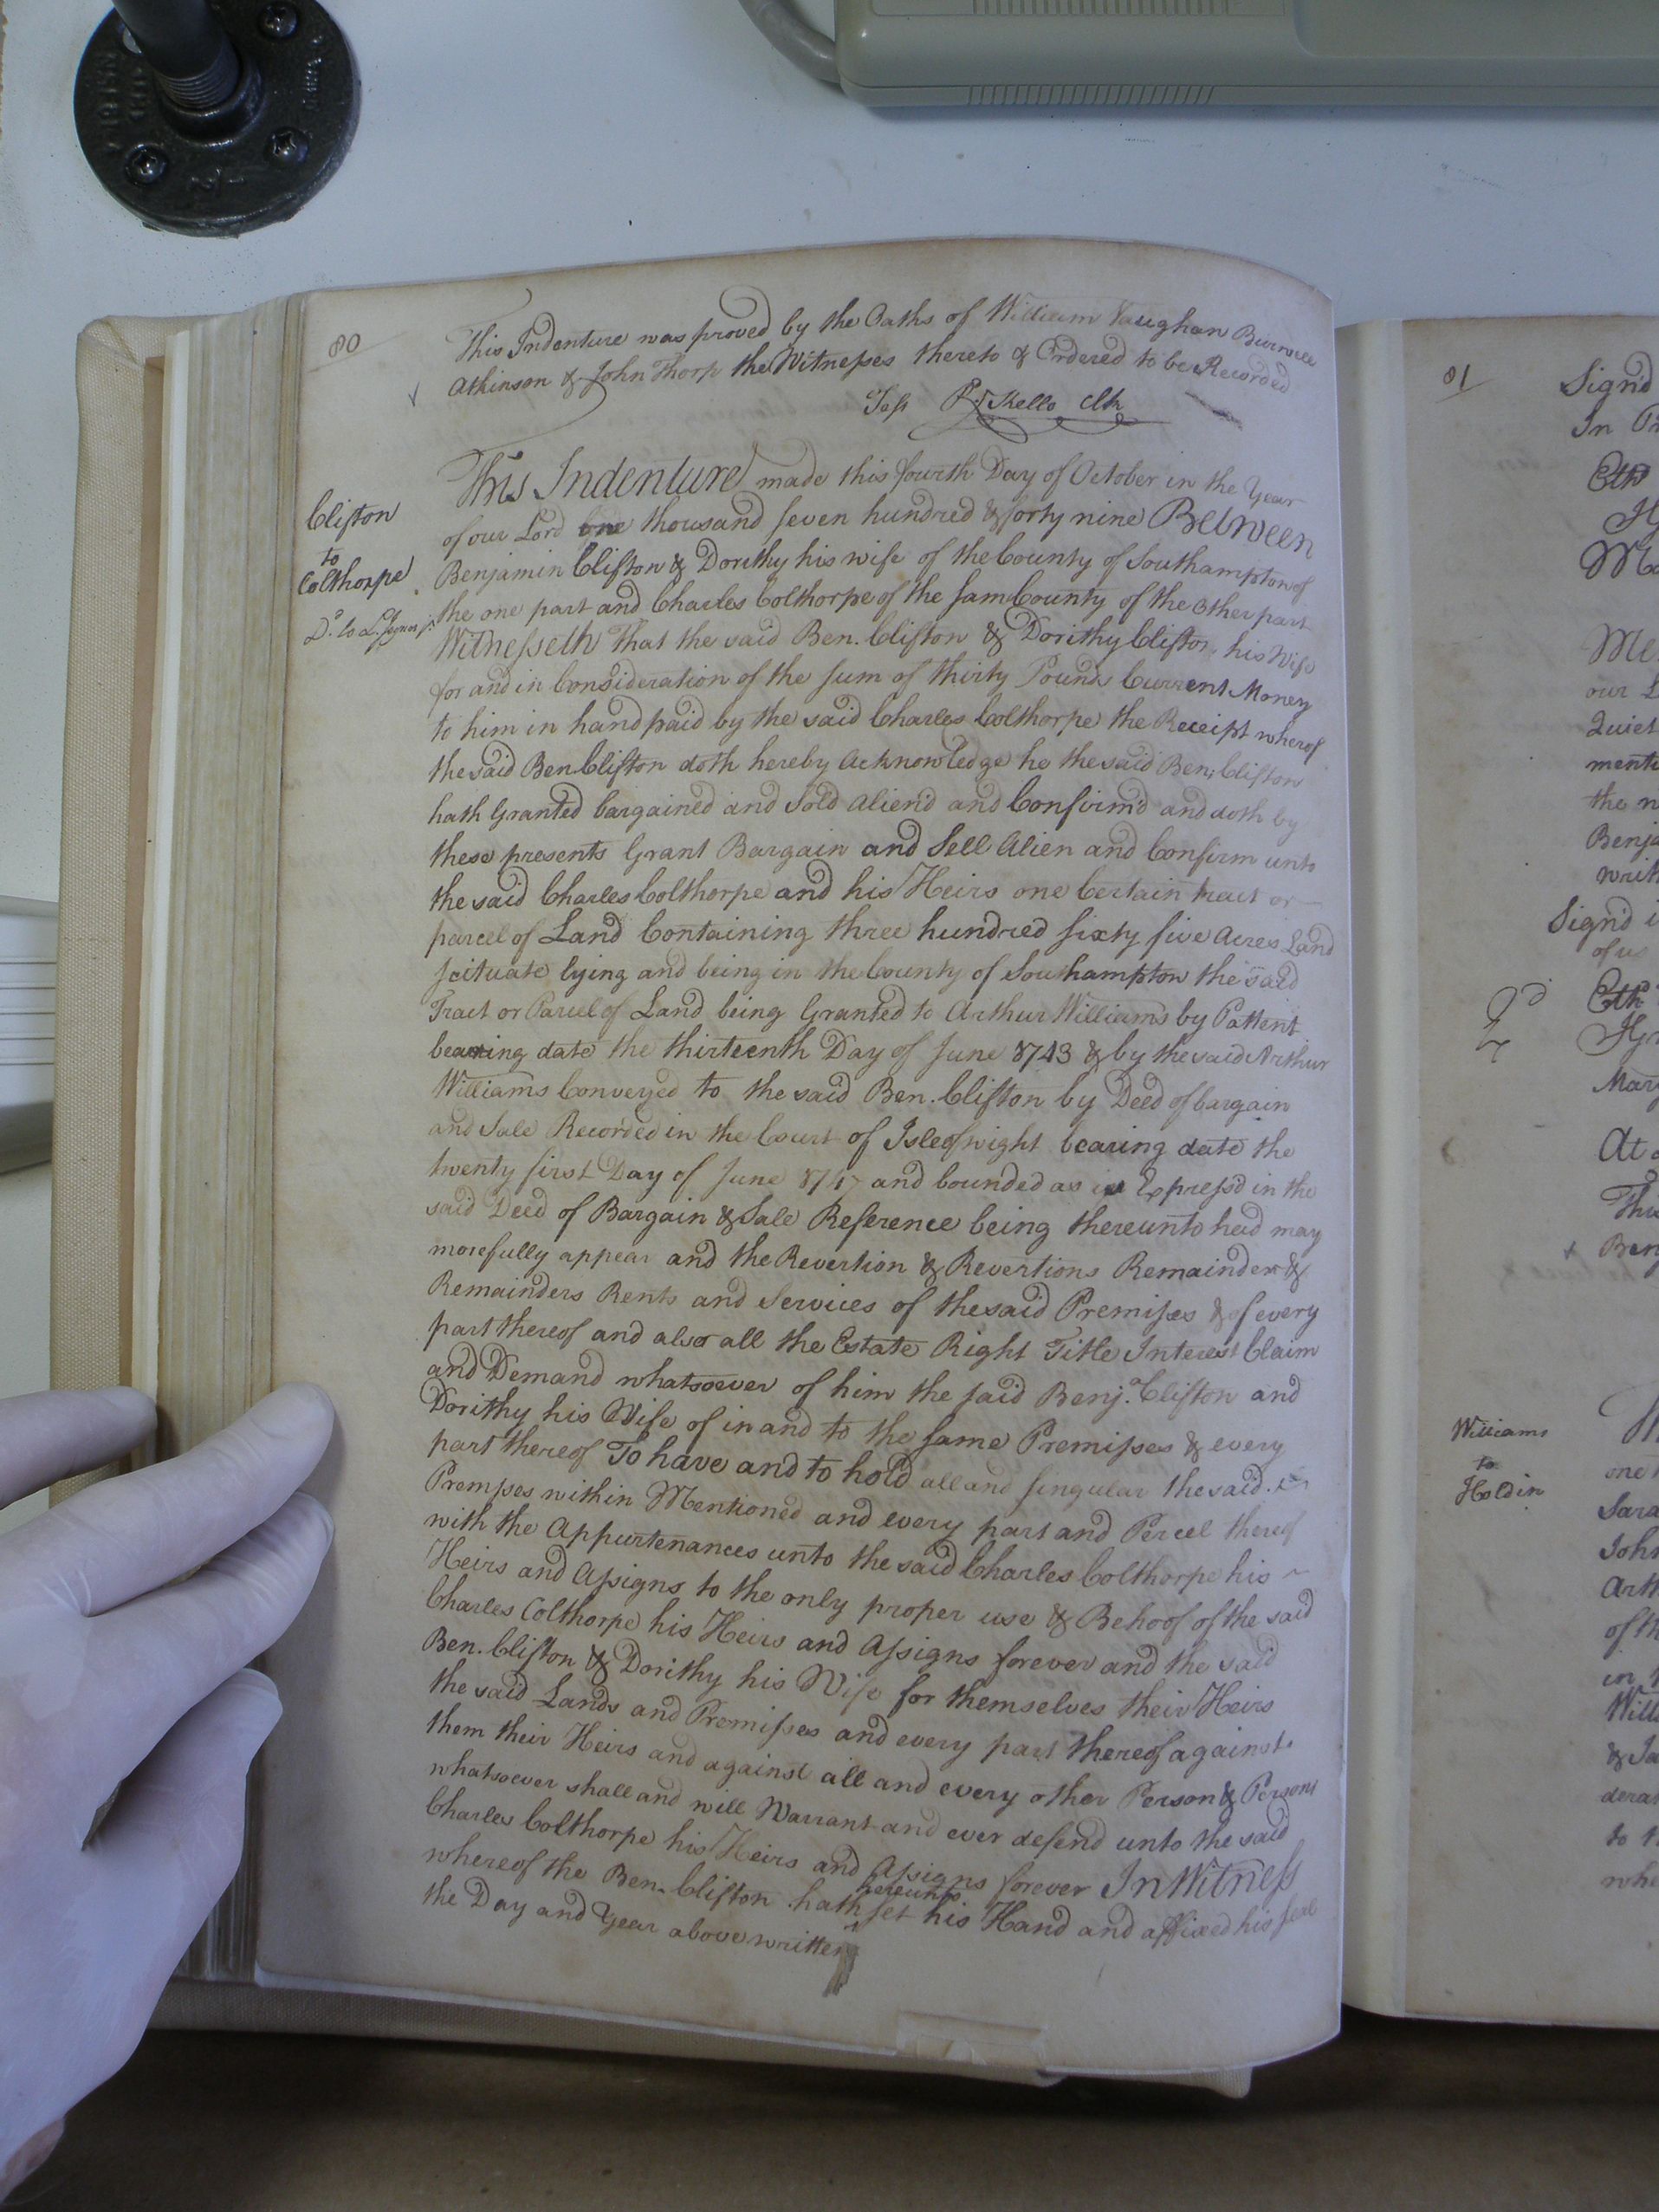 80
This Indenture was proved by the Oaths of William Vaughan Burwell
Atkinson & John Thorp the Witnesses thereto & Ordered to be Recorded
Test R. Kello Clk
Clifton
to
Colthorpe
This Indenture made this fourth Day of October in the Year
of our Lord one thousand seven hundred & forty nine Between
Benjamin Clifton & Dorithy his wife of the County of Southampton of
the one part and Charles Colthorpe of the same County of the Other part
Witnesseth That the said Ben. Clifton & Dorithy Clifton his Wife
for and in Consideration of the sum of thirty Pounds Current Money
to him in hand paid by the said Charles Colthorpe the Receipt wherof
the said Ben Clifton doth hereby Acknowledge he the said Ben; Clifton
hath Granted bargained and Sold Alien'd and Confirm'd and doth by
these presents Grant Bargain and Sell Alien and Confirm unto
the said Charles Colthorpe and his Heirs one Certain tract or
parcel of Land Containing three hundred sixty five Acres Land
scituate lying and being in the County of Southampton the said
Tract or Parcel of Land being Granted to Arthur Williams by Pattent
bearing date the thirteenth Day of June 1743 & by the said Arthur
Williams Conveyed to the said Ben. Clifton by Deed of bargain
and Sale Recorded in the Court of Isle of wight bearing date the
twenty first Day of June and bounded as is Express'd in the
said Deed of Bargain & Sale Reference being thereunto had may
more fully appear and the Revertion & Revertions Remainder &
Remainders Rents and Services of the said Premises & of every
part thereof and also all the Estate Right Title Interest Claim
and Demand whatsoever of him the said Benj. Clifton and
Dorithy his Wife of in and to the same Premisses & every
part thereof To have and to hold all and singular the said
Premises within Mentioned and every part and Percel thereof
with the Appurtenances unto the said Charles Colthorpe his
Heirs and Assigns to the only proper use & Behoof of the said
Charles Colthorpe his Heirs and Assigns forever and the said
Ben. Clifton & Dorithy his Wife for themselves their Heirs
the said Lands and Premisses and every part thereof against
them their Heirs and against all and every other Person & Persons
whatsoever shall and will Warrant and ever defend unto the said
Charles Colthorpe his Heirs and Assigns forever In Witness
whereof the Ben. Clifton hath hereunto set his Hand and affixed his seal
the Day and Year above written
81
Sign'd
In
our
Quiet
the
Sign'd
of us
At
Williams
to
Holdin
of th
to